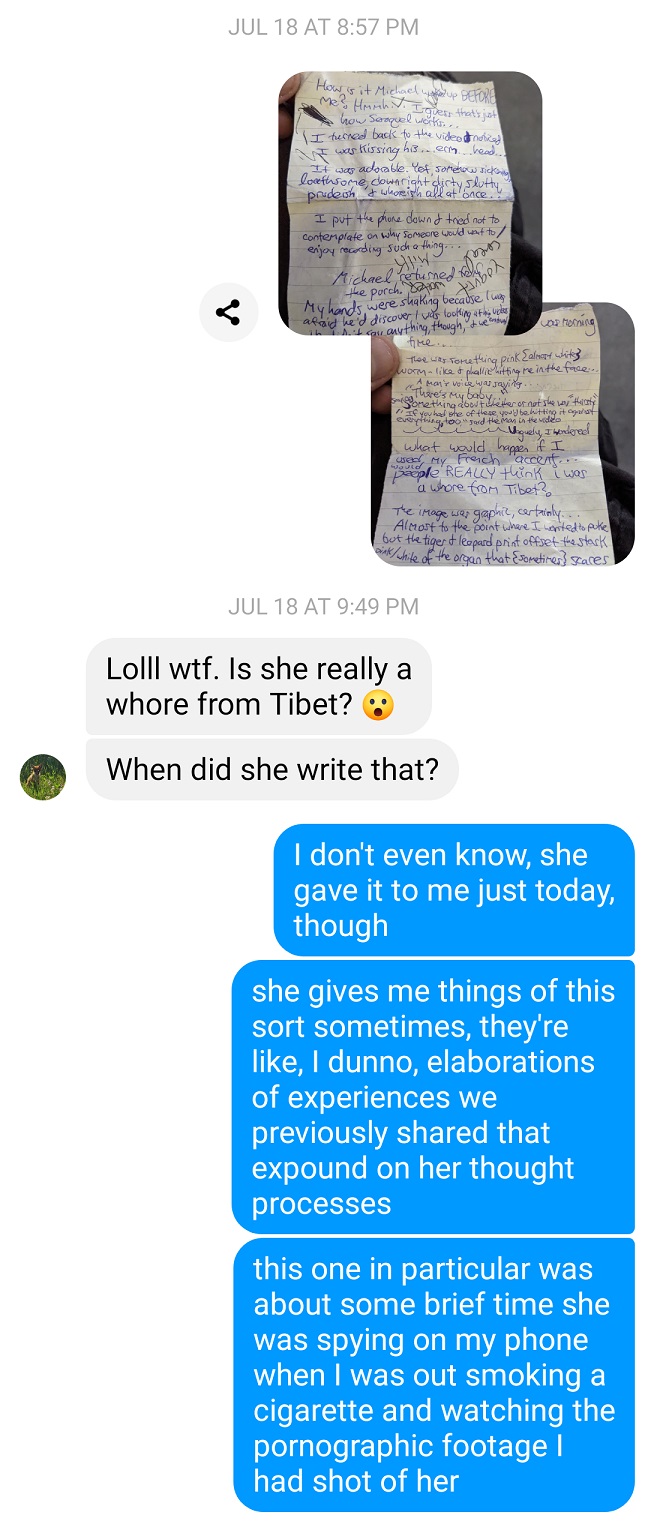 JUL 18 AT 8:57 PM
How is it Michael woke up BEFORE
Me? Hmmh... I guess that's just
how Seroquel works...
I turned back to the video & noticed
I was kissing his...erm...head...
It was adorable. Yet, somehow sickening
loathsome, downright dirty, slutty,
prudesh & whoreish all at once...
I put the phone down & tried not to
contemplate on why someone would want to/
enjoy recording such a thing...
Michael returned from
the porch.
My hands were shaking because I was
afraid he'd discover I was looking at
say anything, though, & we
was morning
time...
There was something pink {almost white}
worm-like & phallic hitting me in the face...
A man's voice was saying...
"There's my baby"
Something about whether or not she was "thirsty"
"If you had one of these you'd be hitting it against
everything, too" said the man in the video
Vaguely, I wondered
what would happen if I
used my French accent...
would
people REALLY think i was
a whore from Tibet?
The image was gaphic, certainly...
Almost to the point where I wanted to puke
but the tiger & leopard print offset the stark
pink/white of the organ that {sometimes} scares
JUL 18 AT 9:49 PM
Lolll wtf. Is she really a
whore from Tibet? 😮
When did she write that?
I don't even know, she
gave it to me just today,
though
she gives me things of this
sort sometimes, they're
like, I dunno, elaborations
of experiences we
previously shared that
expound on her thought
processes
this one in particular was
about some brief time she
was spying on my phone
when I was out smoking a
cigarette and watching the
pornographic footage I
had shot of her